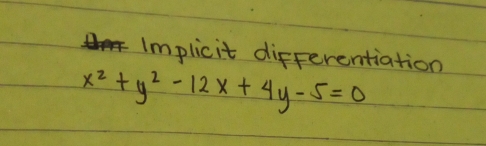 Implicit differentiation
x² + y² - 12x + 4y - 5 = 0